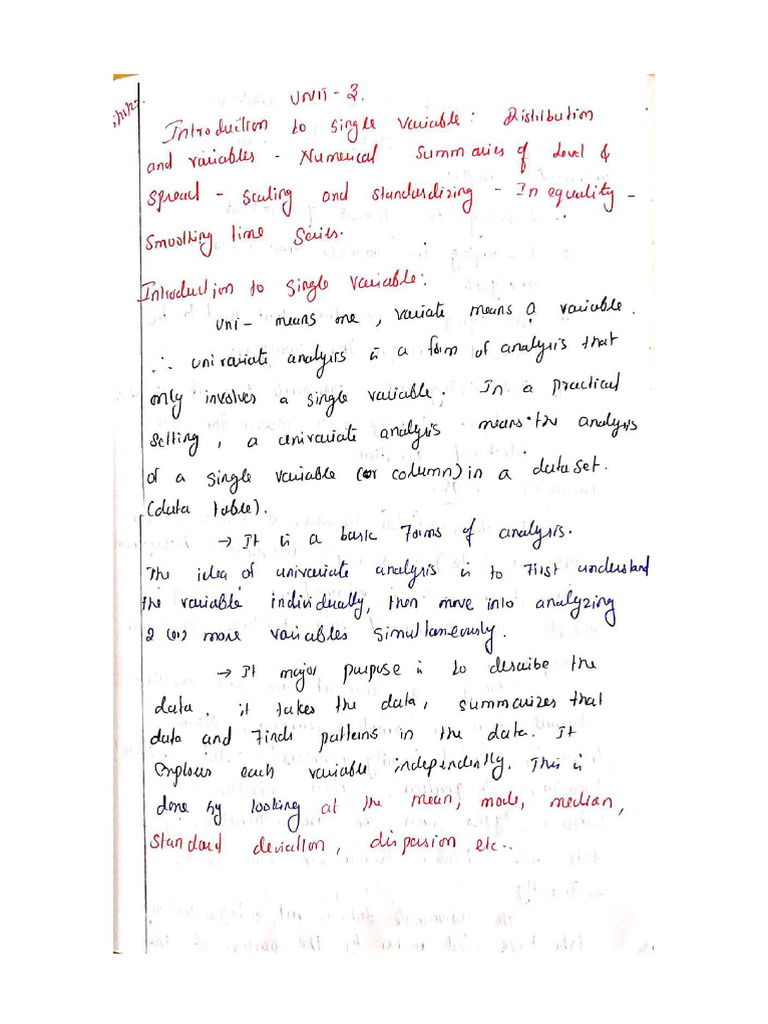 UNIT - 3.
Introduction to Single Variable: Distribution
and variables - Numerical Summaries of Level &
Spread - Scaling and standardizing - Inequality -
Smoothing time Series.
Introduction to Single Variable:
Uni - means one, variate means a variable.
∴ univariate analysis is a form of analysis that
only involves a single variable. In a practical
setting, a univariate analysis means the analysis
of a single variable (or column) in a dataset.
(data table).
→ It is a basic forms of analysis.
The idea of univariate analysis is to first understand
the variable individually, then move into analyzing
2 (or) more variables simultaneously.
→ It major purpose is to describe the
data. it takes the data, summarizes that
data and finds patterns in the data. It
explores each variable independently. This is
done by looking at the mean, mode, median,
standard deviation, dispersion etc..